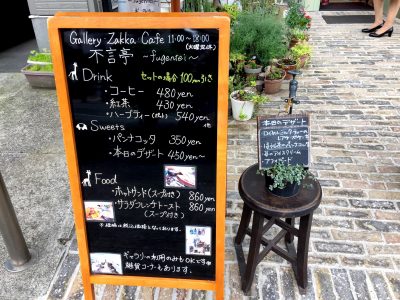 Gallery Zakka Cafe 11:00~18:00
(火曜定休)
不言亭 ~fugentei~
Drink セットの場合100yen引き
・コーヒー 480yen
・紅茶 430yen
・ハーブティー 540yen
Sweets 他
・パンナコッタ 350yen
・本日のデザート 450yen~
Food
・ホットサンド(スープ付き) 860yen
・サラダフレンチトースト 860yen
(スープ付き)
※価格は税込価格となっております。
ギャラリーの利用のみもOKです
雑貨コーナーもあります。
本日のデザート